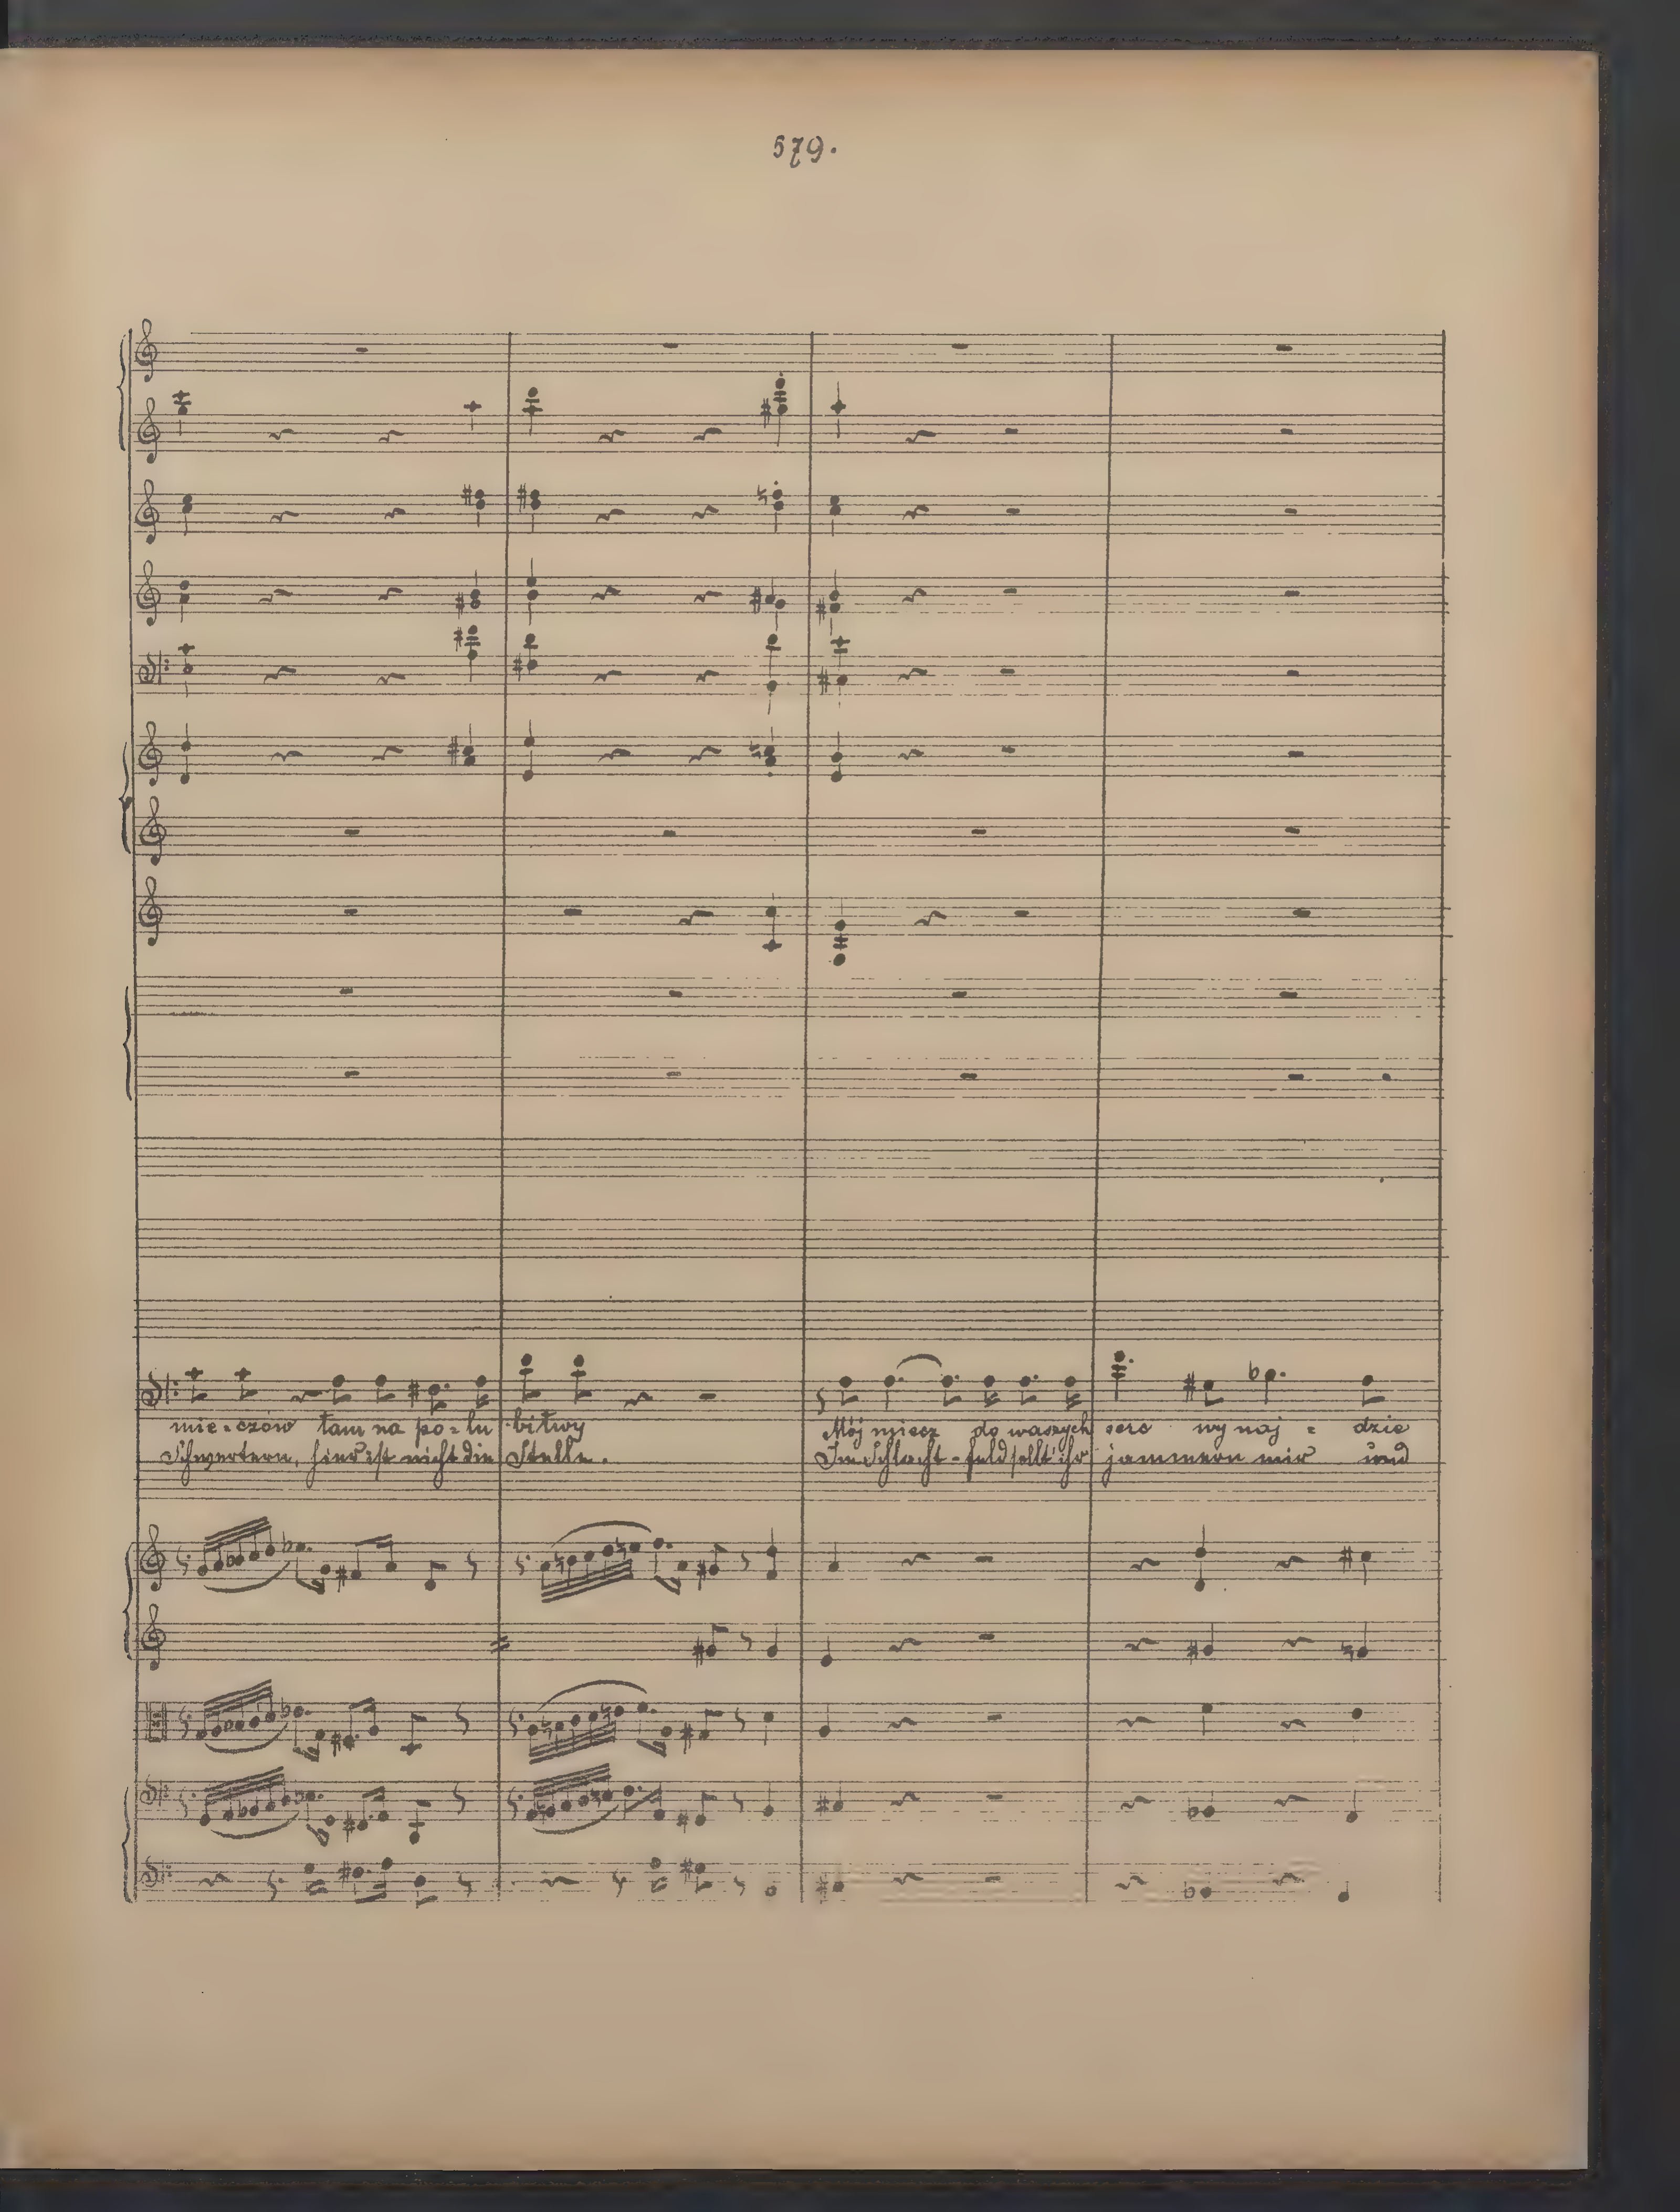 579.
mie-czów tam na po-lu bitwy Mój miecz do waszych serc wy naj - dzie
Schwertern, hier ist nicht die Stelle. Im Schlacht-feld sollt' ihr jammern mir und